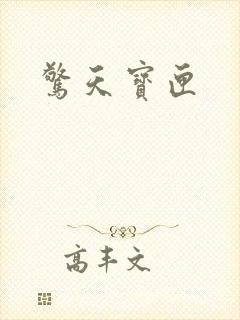 驚天寶匣
高丰文